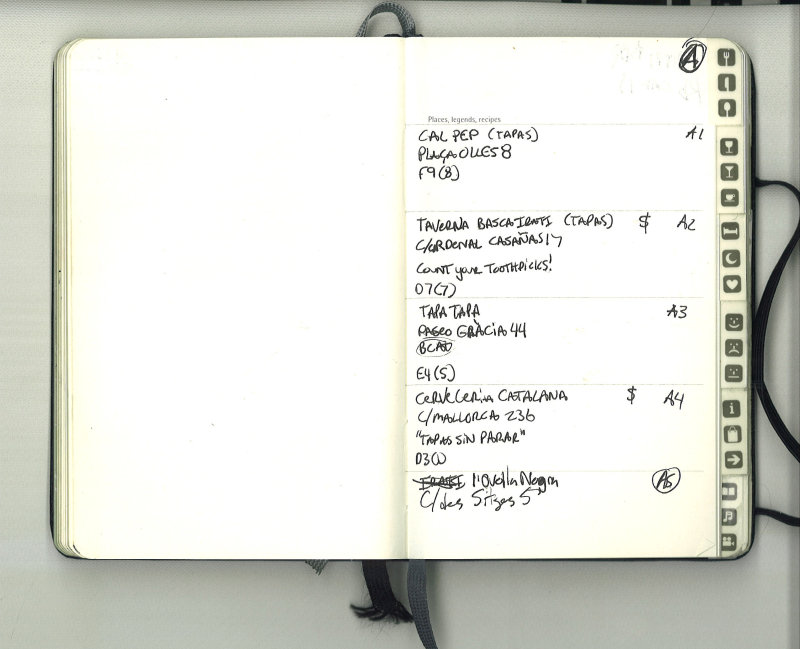 A
Places, legends, recipes
CAL PEP (TAPAS) A1
PLAÇA OLLES 8
F9(8)
TAVERNA BASCA IRATI (TAPAS) $ A2
C/CARDENAL CASAÑAS 17
COUNT your TOOTHPICKS!
D7(7)
TAPA TAPA A3
PASEO GRÀCIA 44
BCAO
E4(5)
CERVECERIA CATALANA $ A4
C/MALLORCA 236
"TAPAS SIN PARAR"
D3(1)
l'Ovella Negra A5
C/des Sitges 5